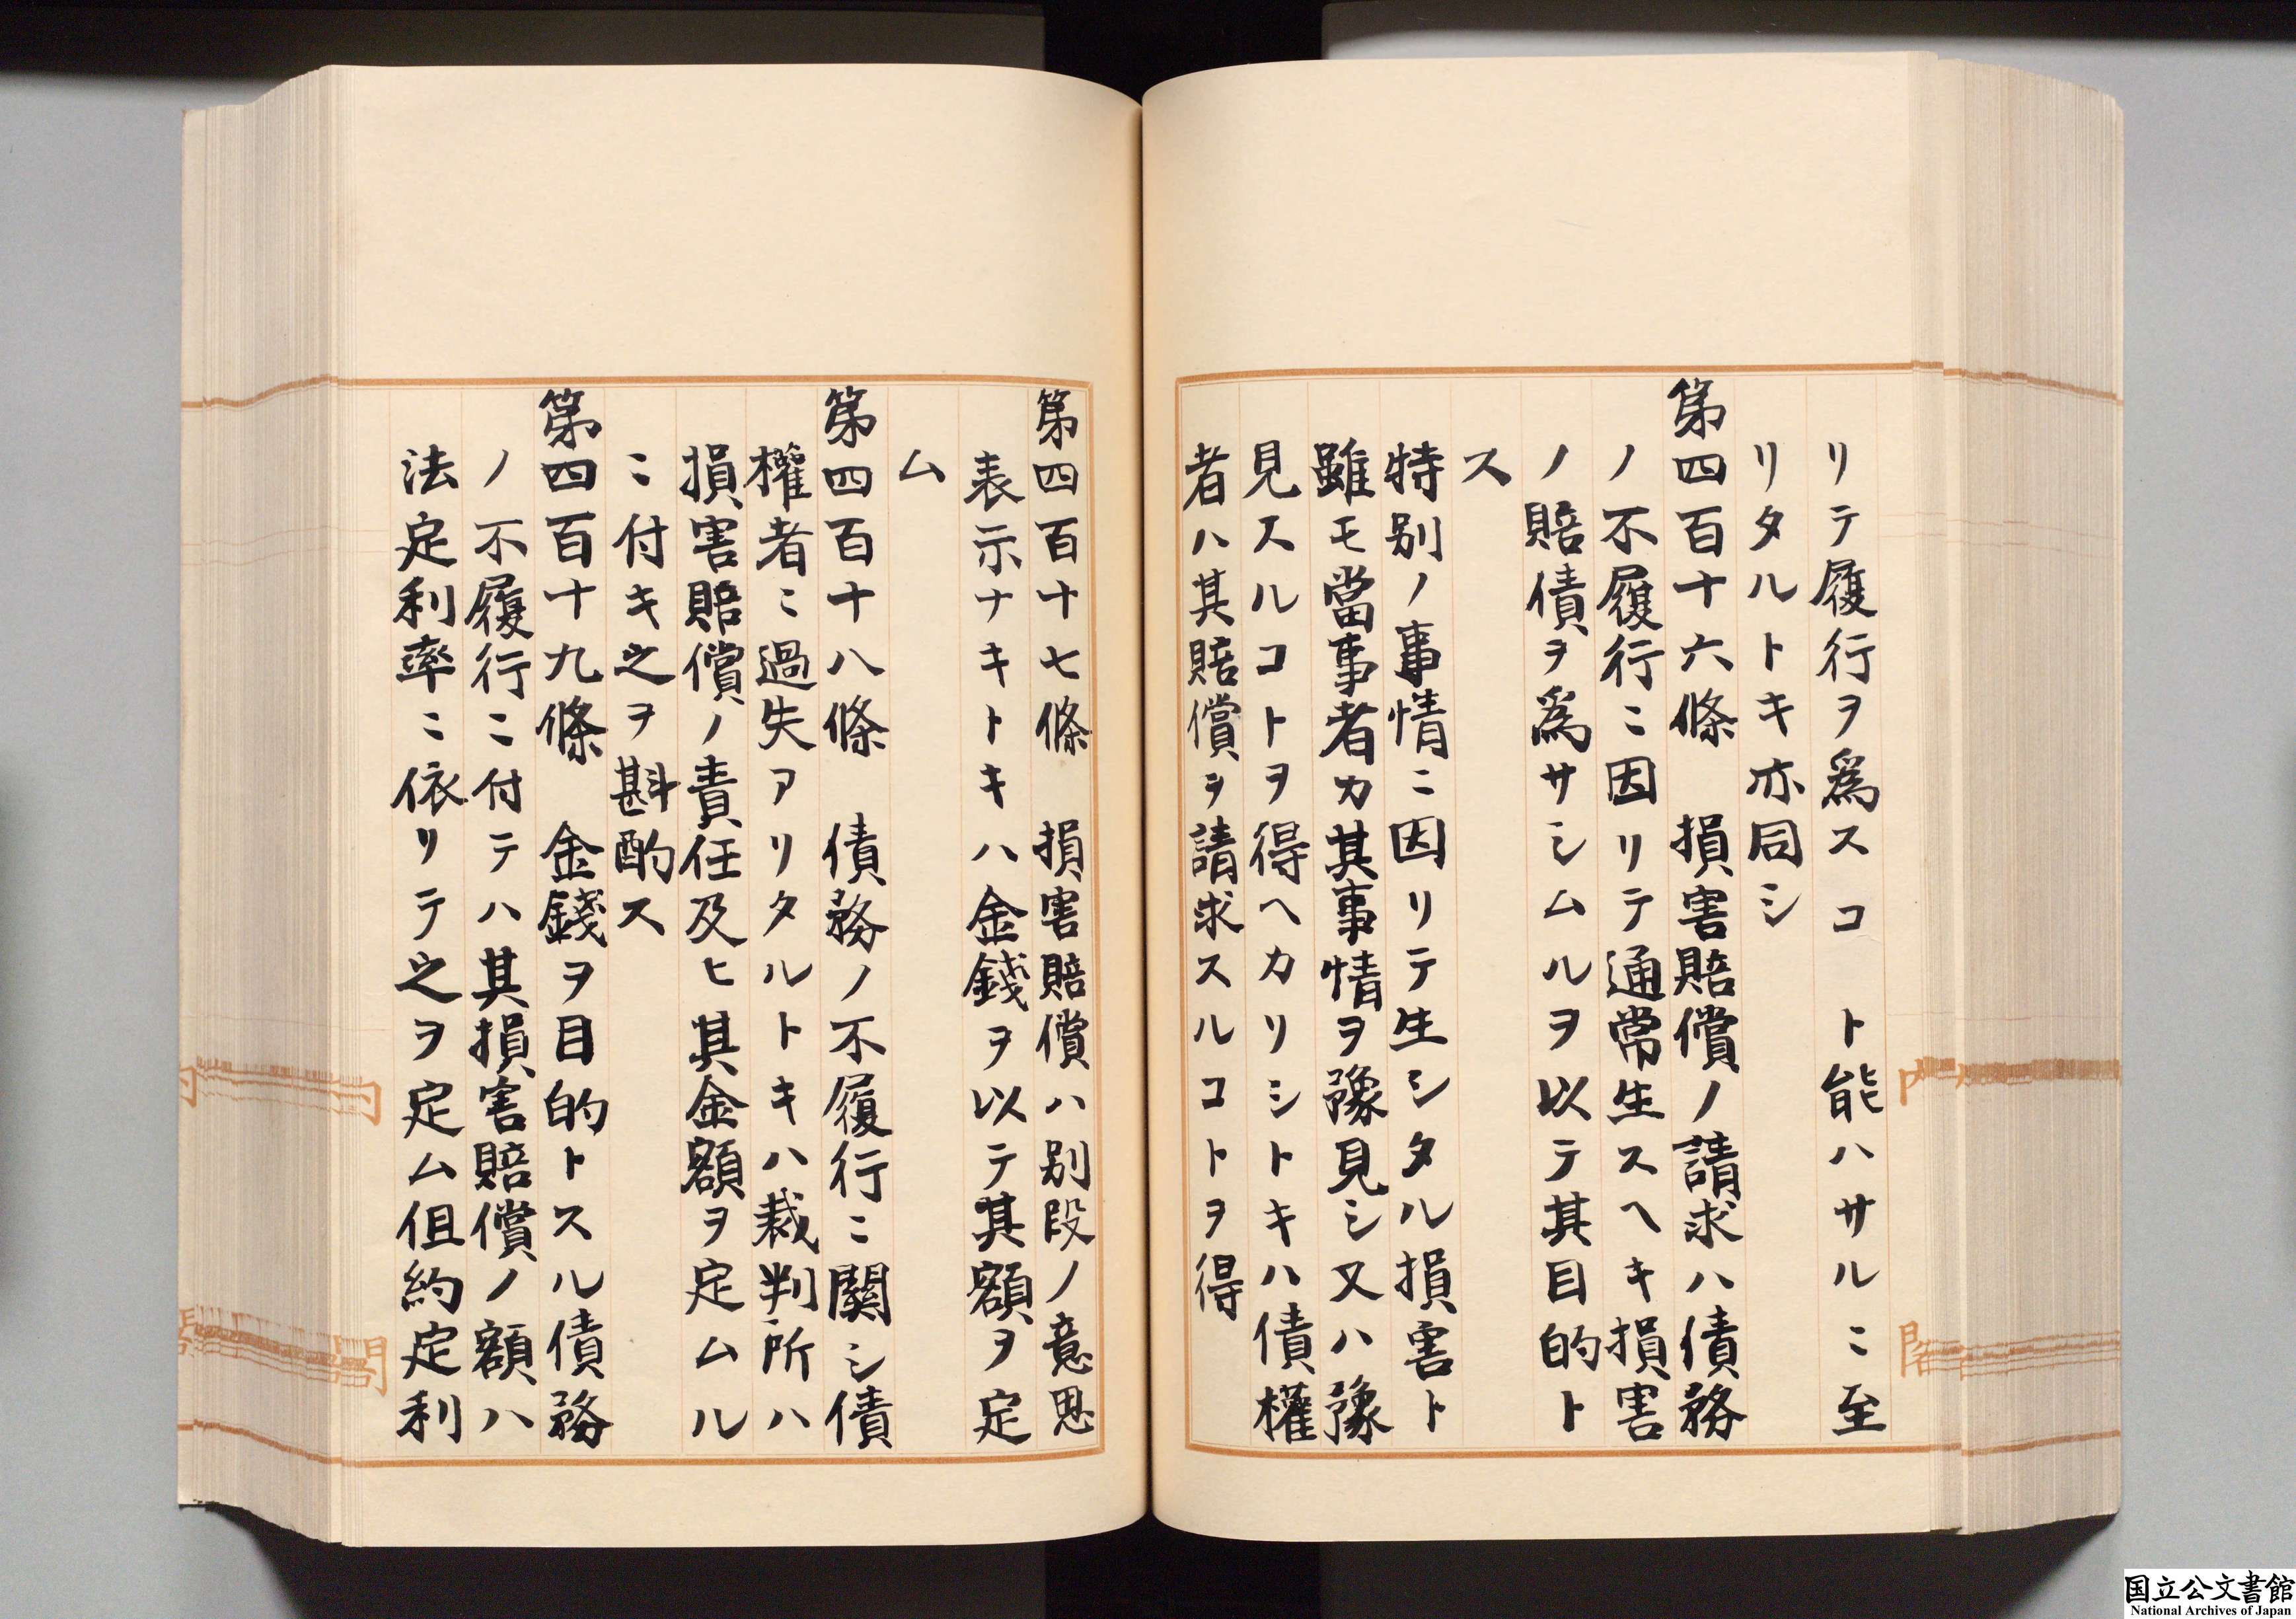 リテ履行ヲ爲スコト能ハサルニ至
リタルトキ亦同シ
第四百十六條 損害賠償ノ請求ハ債務
ノ不履行ニ因リテ通常生スヘキ損害
ノ賠債ヲ爲サシムルヲ以テ其目的ト
ス
特別ノ事情ニ因リテ生シタル損害ト
雖モ當事者カ其事情ヲ豫見シ又ハ豫
見スルコトヲ得ヘカリシトキハ債權
者ハ其賠償ヲ請求スルコトヲ得
第四百十七條 損害賠償ハ別段ノ意思
表示ナキトキハ金錢ヲ以テ其額ヲ定
ム
第四百十八條 債務ノ不履行ニ關シ債
權者ニ過失アリタルトキハ裁判所ハ
損害賠償ノ責任及ヒ其金額ヲ定ムル
ニ付キ之ヲ斟酌ス
第四百十九條 金錢ヲ目的トスル債務
ノ不履行ニ付テハ其損害賠償ノ額ハ
法定利率ニ依リテ之ヲ定ム但約定利
国立公文書館
National Archives of Japan